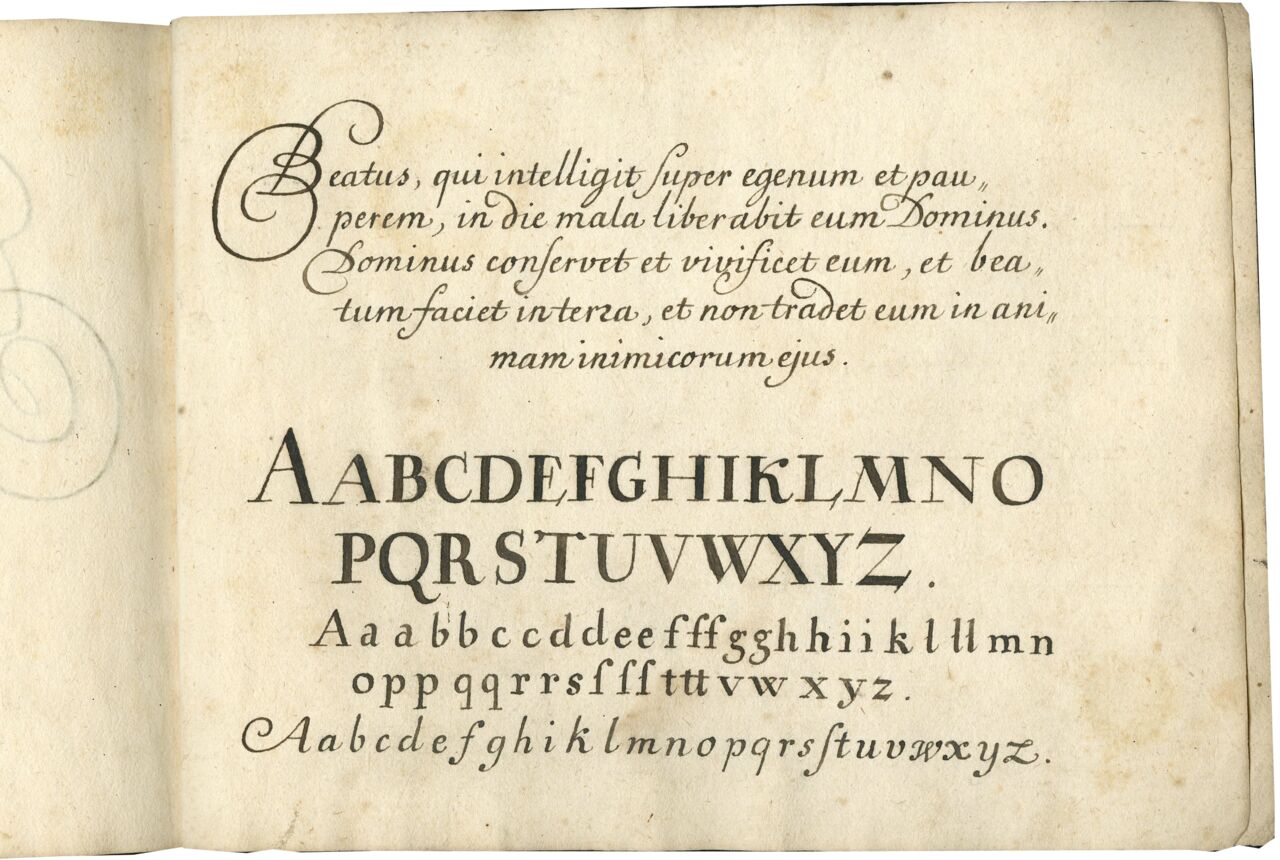 Beatus, qui intelligit ſuper egenum et pau„
perem, in die mala liberabit eum Dominus.
Dominus conſervet et vivificet eum, et bea„
tum faciet in terꝛa, et non tradet eum in ani„
mam inimicorum ejus.
AABCDEFGHIKLMNO
PQRSTUVWXYZ.
Aaabbccddeefffgghhiiklllmn
oppqqrrsſſſtttvwxyz.
Aabcdefghiklmnopqrsſtuvwxyz.